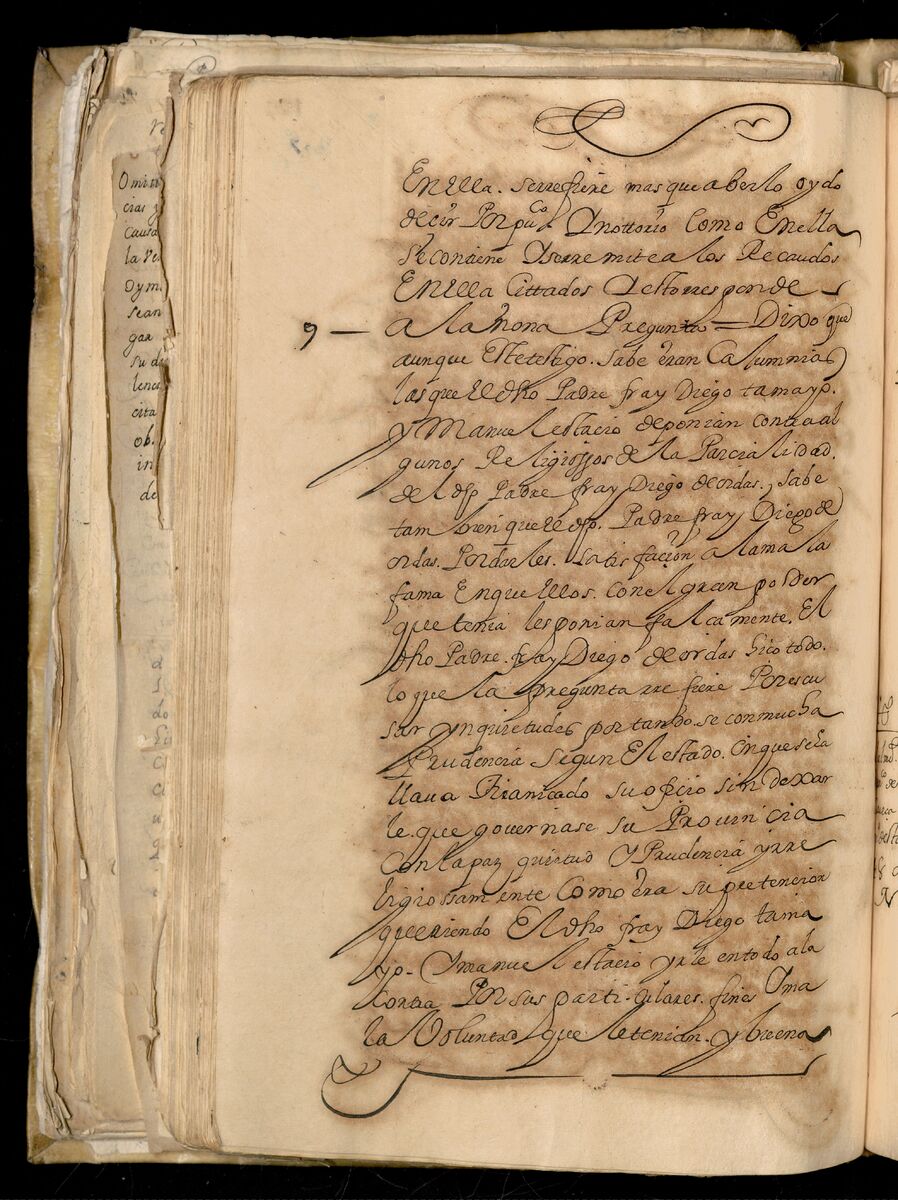 En ella. se rrefiere mas que aberlo oydo
decir Por pu.co Y nottorio Como En ella
se contiene Y se rremite a los Recaudos
En ella Cittados Y esto rresponde
9 — a la nona Pregunta = Dixo que
aunque Este testigo. sabe eran Calumnias
las que el dho Padre fray Diego tamayo.
y Manuel estacio deponian contra al
gunos Religiossos de la Parcialidad.
del dho Padre fray Diego de ordas, sabe
tambien que el dho. Padre fray Diego de
ordas. Por darles. satisfacion a la mala
fama En que ellos. con el gran poder
que tenia les ponian falcamente. El
dho Padre. fray Diego de ordas hico todo.
lo que la pregunta rrefiere Por escu
sar ynquietudes portando. se con mucha
Prudencia segun El estado. En que se la
llaua su oficio sin dexar
le. que governase su Prouincia
Con la paz quietud Y Prudencia y rre
ligiossamente Como era su pretencion
queriendo El dho fray Diego tama
yo. Y manuel estacio yrle en todo a la
Contra Por sus particulares. fines Y ma
la Voluntad que le tenian. y buena
Omisi
cias y
causa
la
oym
sean
gar
su di
lenci
cita
ob.
in
de